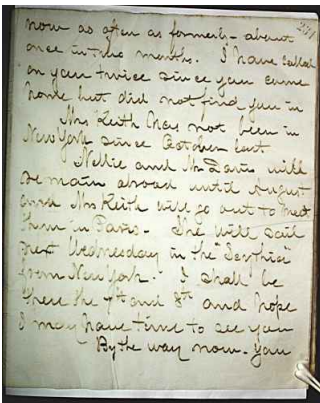 now as often as formerly - about
once in two months. I have called
on you twice since you came
home but did not find you in
Mrs Keith has not been in
New York since October last
Nellie and Mr Davis will
remain abroad until August
and Mrs Keith will go out to meet
them in Paris - She will sail
next Wednesday in the "Scythia"
from New York - I shall be
there the 7th and 8th and hope
I may have time to see you
By the way now - you